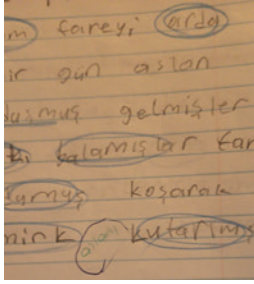 m fareyi arda
ir gün aslan
uşmuş gelmişler
yalamışlar far
şumuş koşarak
mink aslanı kutarımış